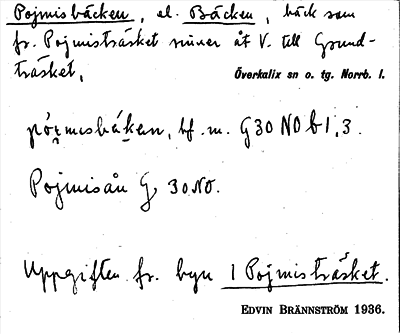 Pojmisbäcken, el. Bäcken, bäck som
fr. Pojmisträsket rinner åt V. till Grund-
träsket.
Överkalix sn o. tg. Norrb. l.
bf. m. G 30 NO b 1, 3.
Pojmisån G, 30 NO.
Uppgiften fr. byn 1 Pojmisträsket.
EDVIN BRÄNNSTRÖM 1936.